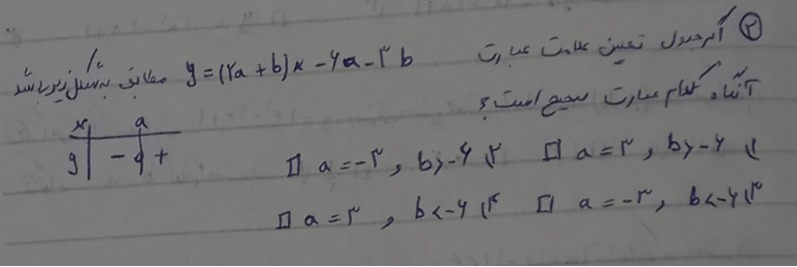 ۲) اگر جدول تعیین علامت عبارت y=(۲a+b)x-۶a-۳b مطابق به شکل زیر باشد
آنگاه کدام عبارت صحیح است؟
x | a
y | - ٩ +
۱) a=۳ , b>-۶ □ ۲) a=-۳ , b>-۶ □
۳) a=-۳ , b<-۶ □ ۴) a=۳ , b<-۶ □